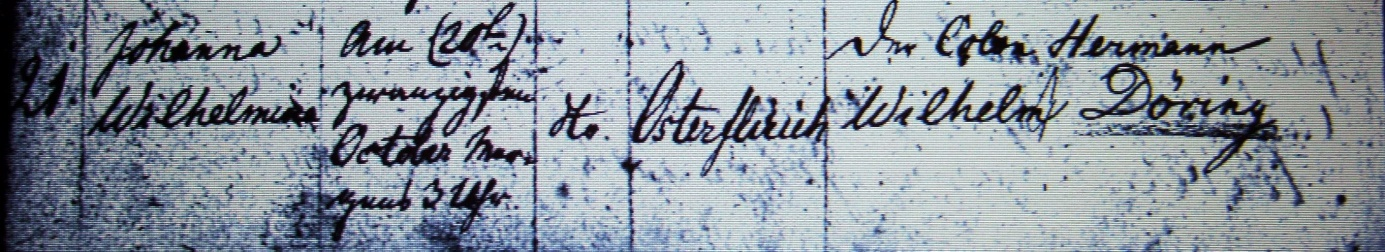 21.
Johanna
Wilhelmina
Am (20ten)
zwanzigsten
October Mor-
gens 3 Uhr.
Osterflierich
Der Colon Hermann
Wilhelm Döring